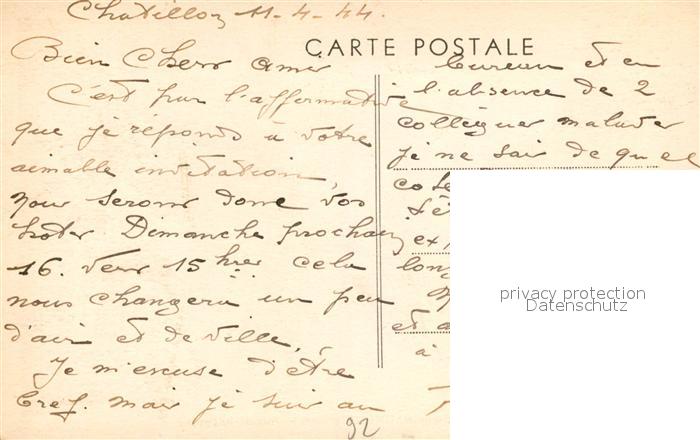 Chatillon 11-4-44.
CARTE POSTALE
Bien Chers Amis
C'est par l'affirmative
que je réponds à votre
aimable invitation
nous serons donc vos
hotes Dimanche prochain
16. vers 15 hres cela
nous changera un peu
d'air et de ville.
Je m'excuse d'être
bref. mais je suis au
92
bureau et en
l'absence de 2
collègues malades
je ne sais de quel
coté
long
et
à
privacy protection
Datenschutz